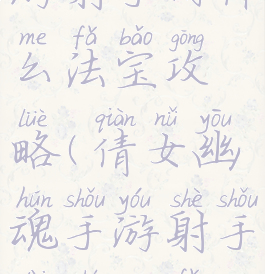 me fǎ bǎo gōng
么法宝攻
lüè qiàn nǚ yōu
略(倩女幽
hún shǒu yóu shè shǒu
魂手游射手